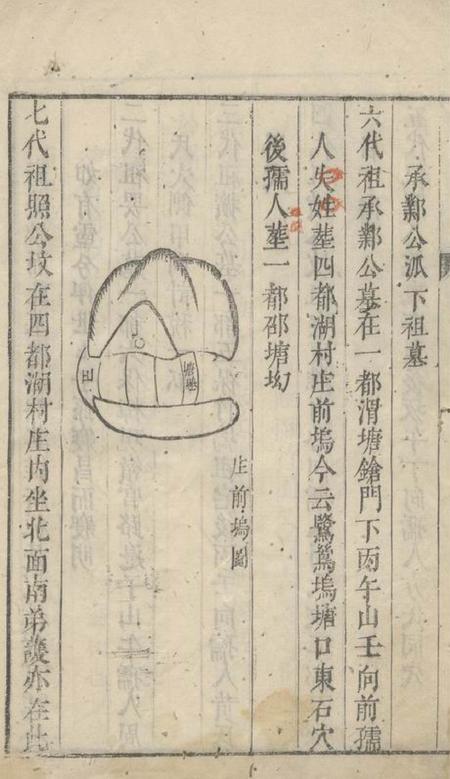 承鄴公派下祖墓
六代祖承鄴公墓在一都渭塘鎗門下丙午山壬向前孺
人失姓塟四都湖村庄前塢今云鷺鷥塢塘口東石穴
後孺人塟一都邵塘坳
庄前塢圖
七代祖照公坟在四都湖村庄内坐北面南弟護亦在此